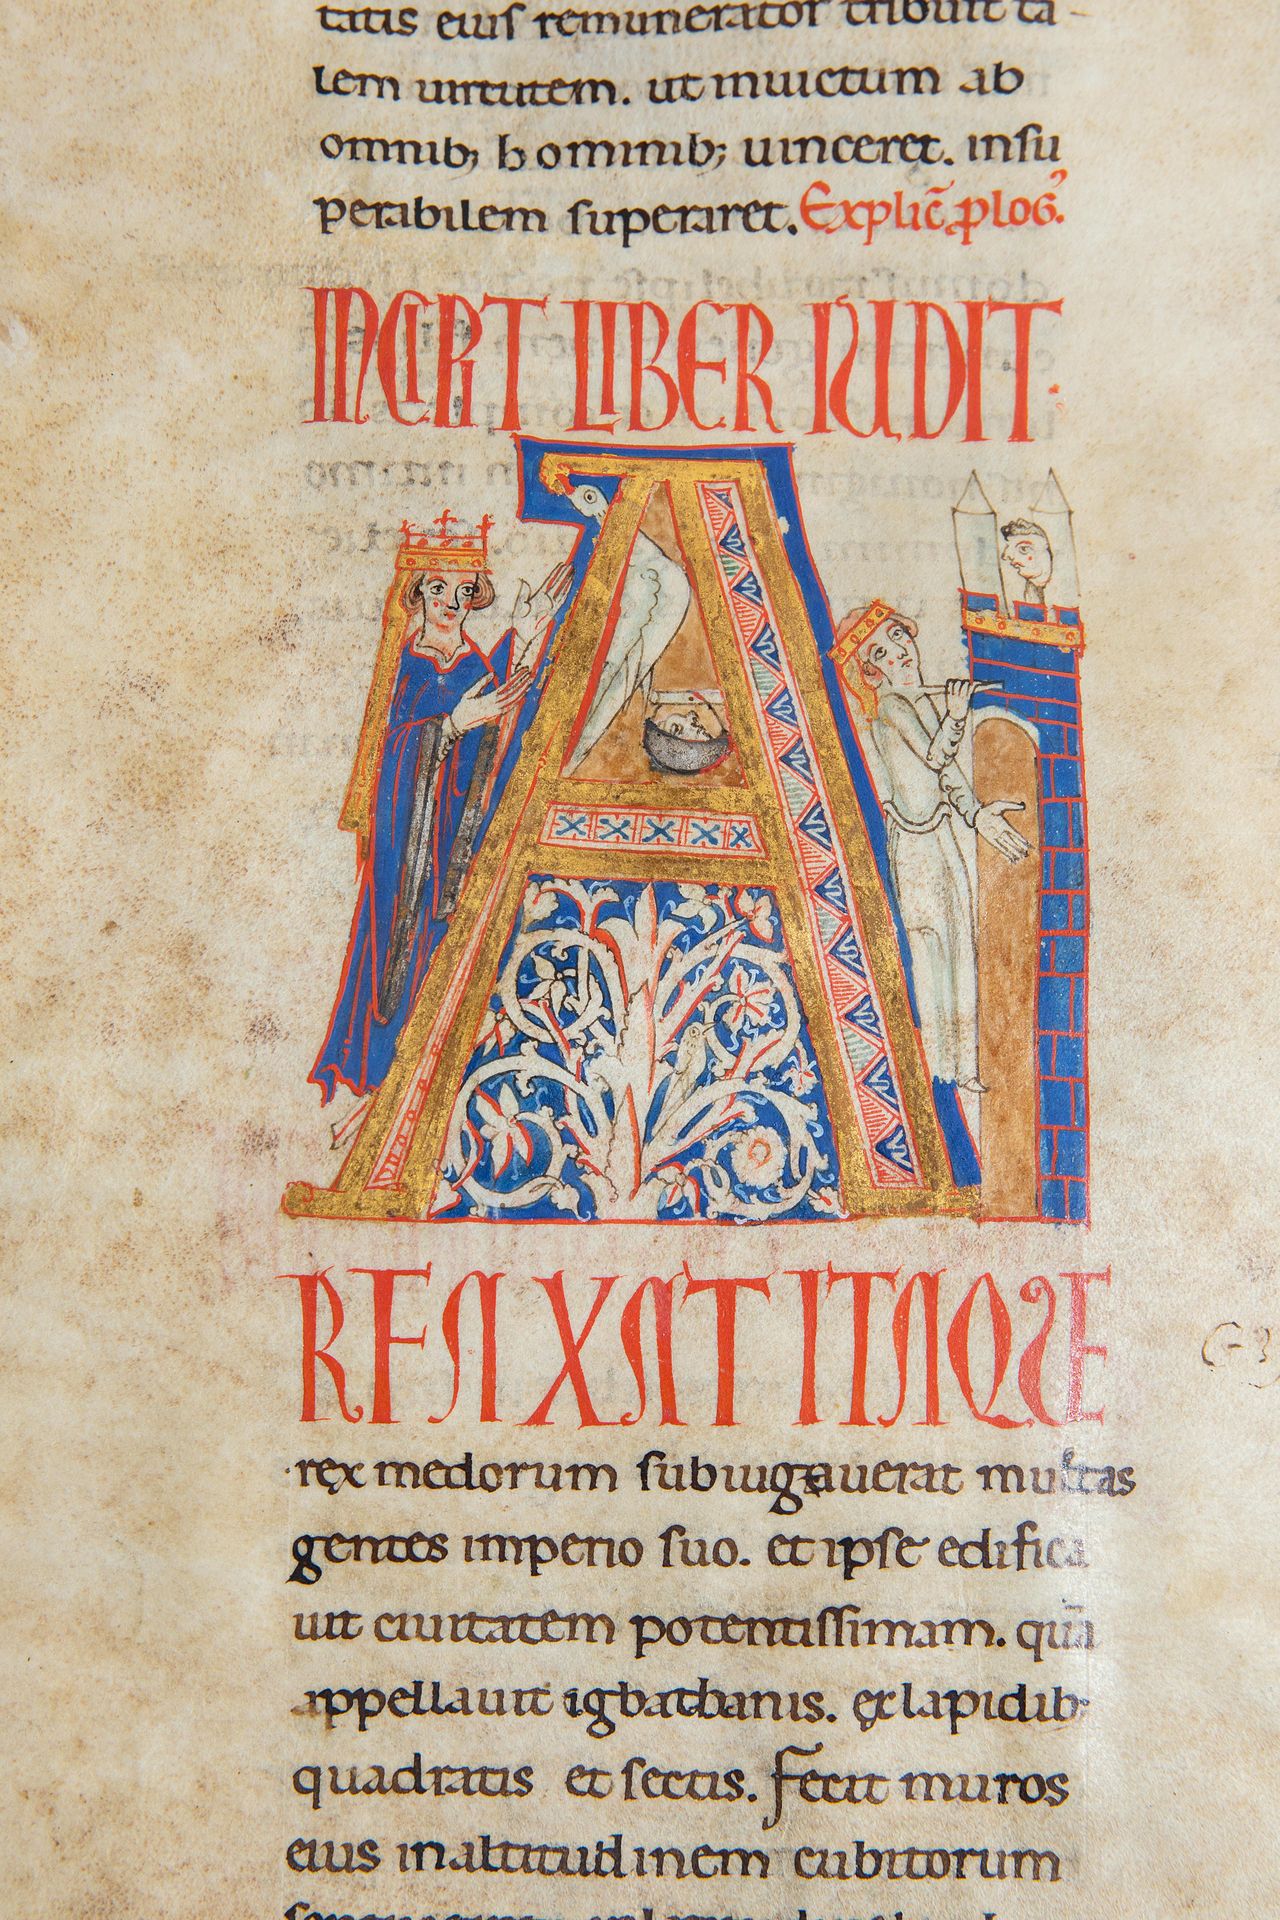 tatis eius remunerator tribuit ta-
lem uirtutem. ut inuictum ab
omnib; hominib; uinceret. insu
perabilem superaret. Explic̄ ꝓlog᾽.
INCIPIT LIBER IUDIT.
A
RFAXAT ITAQUE
rex medorum subiugauerat multas
gentes imperio suo. et ipse edifica
uit ciuitatem potentissimam. quā
appellauit igbathanis. ex lapidib;
quadratis et sectis. Fecit muros
eius in altitudinem cubitorum